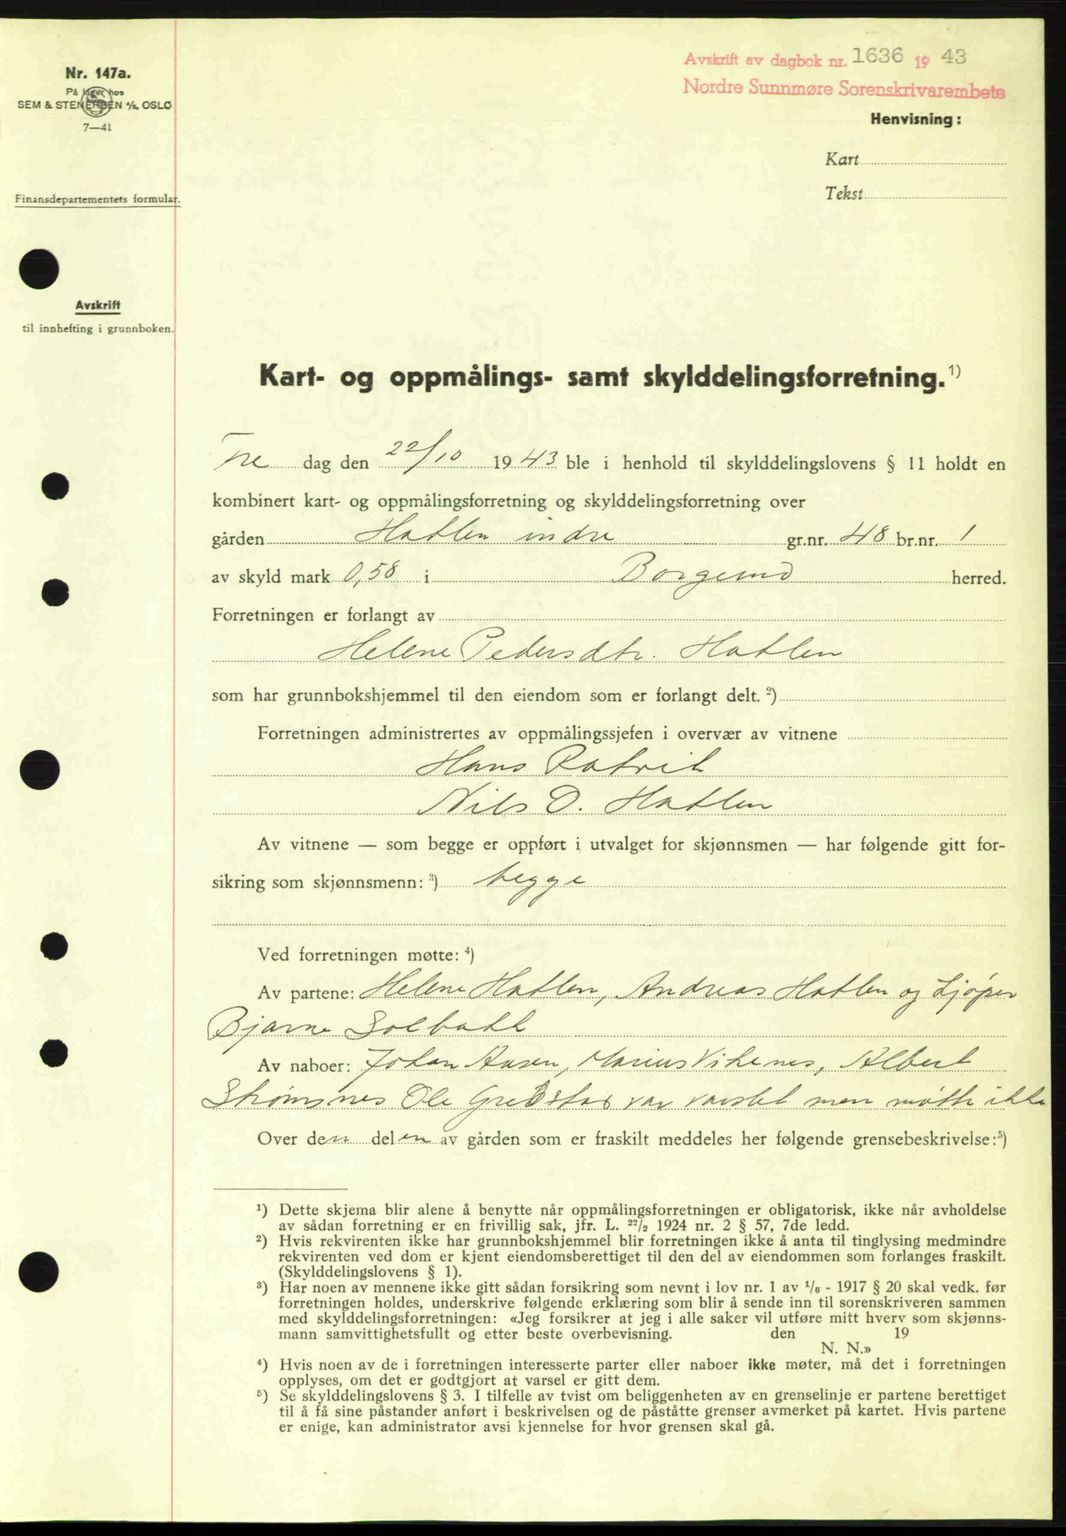 Nr. 147a.
På lager hos
SEM & STENERSEN A/S, OSLO
7—41
Finansdepartementets formular.
Avskrift
til innhefting i grunnboken.
Avskrift av dagbok nr. 1636 19 43
Nordre Sunnmøre Sorenskrivarembete
Henvisning:
Kart
Tekst
Kart- og oppmålings- samt skylddelingsforretning.¹)
Fre dag den 22/10 1943 ble i henhold til skylddelingslovens § 11 holdt en
kombinert kart- og oppmålingsforretning og skylddelingsforretning over
gården Hatlen indre gr.nr. 48 br.nr. 1
av skyld mark 0,58 i Borgund herred.
Forretningen er forlangt av
Helene Pedersdtr. Hatlen
som har grunnbokshjemmel til den eiendom som er forlangt delt. ²)
Forretningen administrertes av oppmålingssjefen i overvær av vitnene
Hans Ratvik
Nils D. Hatlen
Av vitnene — som begge er oppført i utvalget for skjønnsmen — har følgende gitt for-
sikring som skjønnsmenn: ³) begge
Ved forretningen møtte: ⁴)
Av partene: Helene Hatlen, Andreas Hatlen og kjøper
Bjarne Solbakk
Av naboer: Johan Aasen, Marius Vikenes, Albert
Strømsnes Ole Gredstad var varslet men møtte ikke
Over den delen av gården som er fraskilt meddeles her følgende grensebeskrivelse:⁵)
¹) Dette skjema blir alene å benytte når oppmålingsforretningen er obligatorisk, ikke når avholdelse
av sådan forretning er en frivillig sak, jfr. L. ²²/₂ 1924 nr. 2 § 57, 7de ledd.
²) Hvis rekvirenten ikke har grunnbokshjemmel blir forretningen ikke å anta til tinglysing medmindre
rekvirenten ved dom er kjent eiendomsberettiget til den del av eiendommen som forlanges fraskilt.
(Skylddelingslovens § 1).
³) Har noen av mennene ikke gitt sådan forsikring som nevnt i lov nr. 1 av ¹/₆ - 1917 § 20 skal vedk. før
forretningen holdes, underskrive følgende erklæring som blir å sende inn til sorenskriveren sammen
med skylddelingsforretningen: «Jeg forsikrer at jeg i alle saker vil utføre mitt hverv som skjønns-
mann samvittighetsfullt og etter beste overbevisning. den 19
N. N.»
⁴) Hvis noen av de i forretningen interesserte parter eller naboer ikke møter, må det i forretningen
opplyses, om det er godtgjort at varsel er gitt dem.
⁵) Se skylddelingslovens § 3. I tilfelle av tvist om beliggenheten av en grenselinje er partene berettiget
til å få sine påstander anført i beskrivelsen og de påståtte grenser avmerket på kartet. Hvis partene
er enige, kan administrator avsi kjennelse for hvor grensen skal gå.